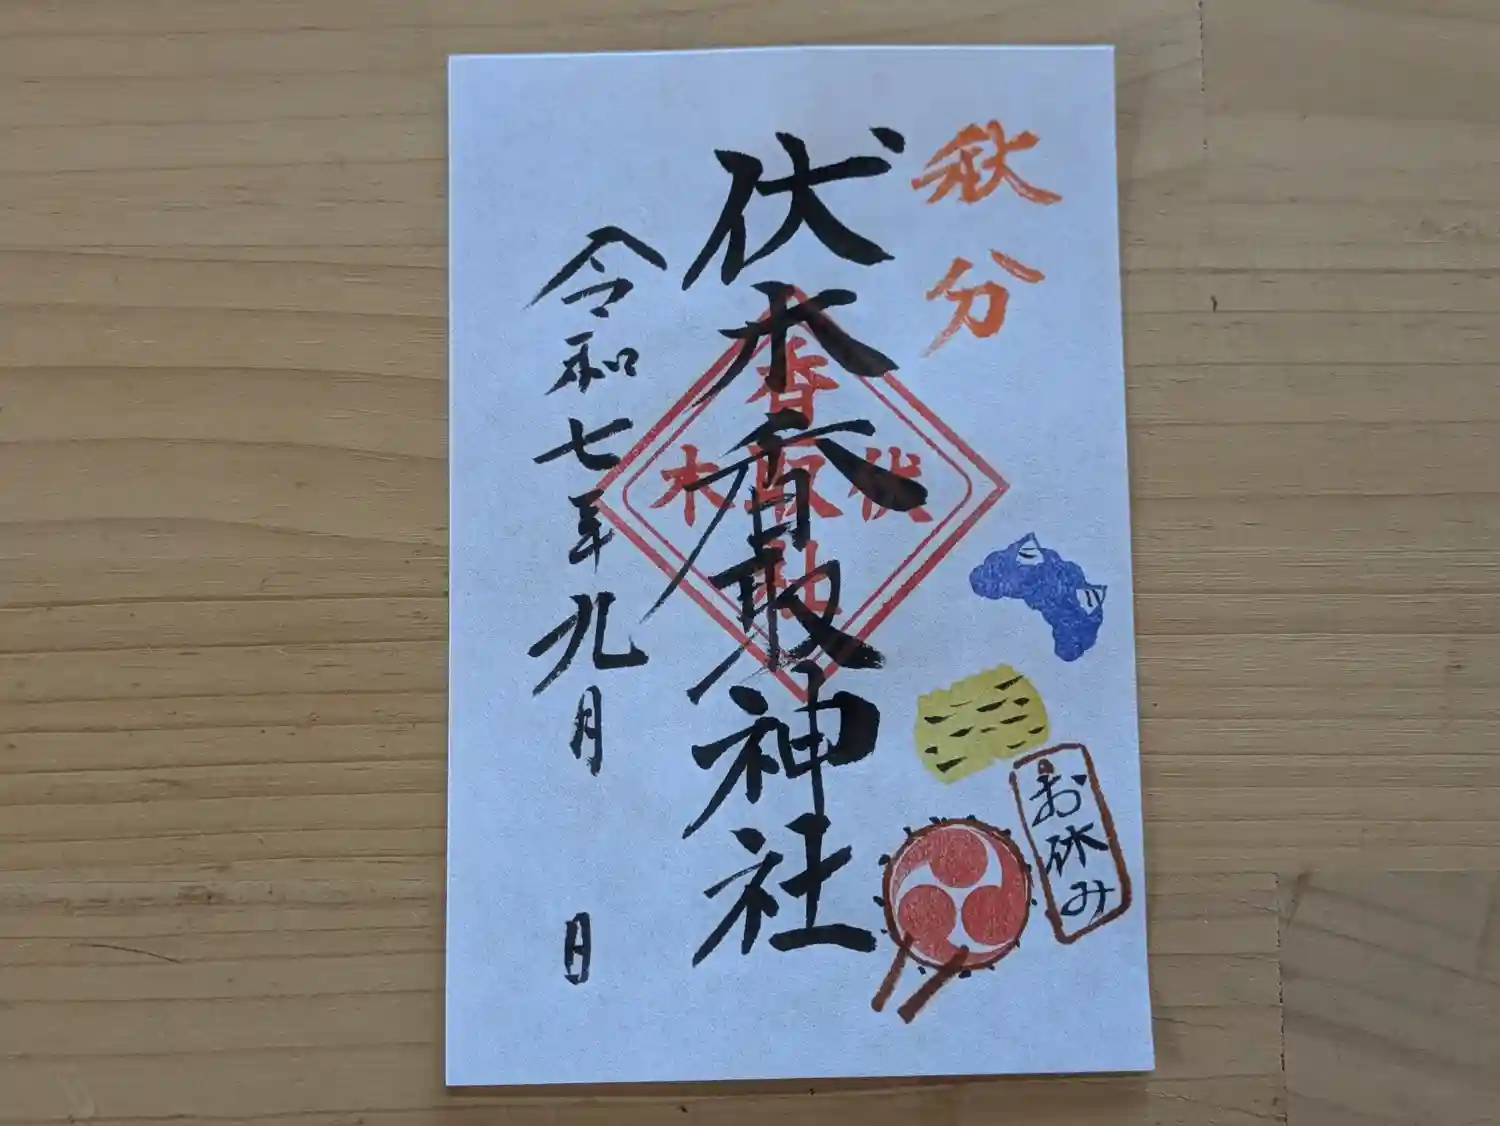 秋分
伏木香取神社
香
伏取木
社
令和七年九月 日
お休み